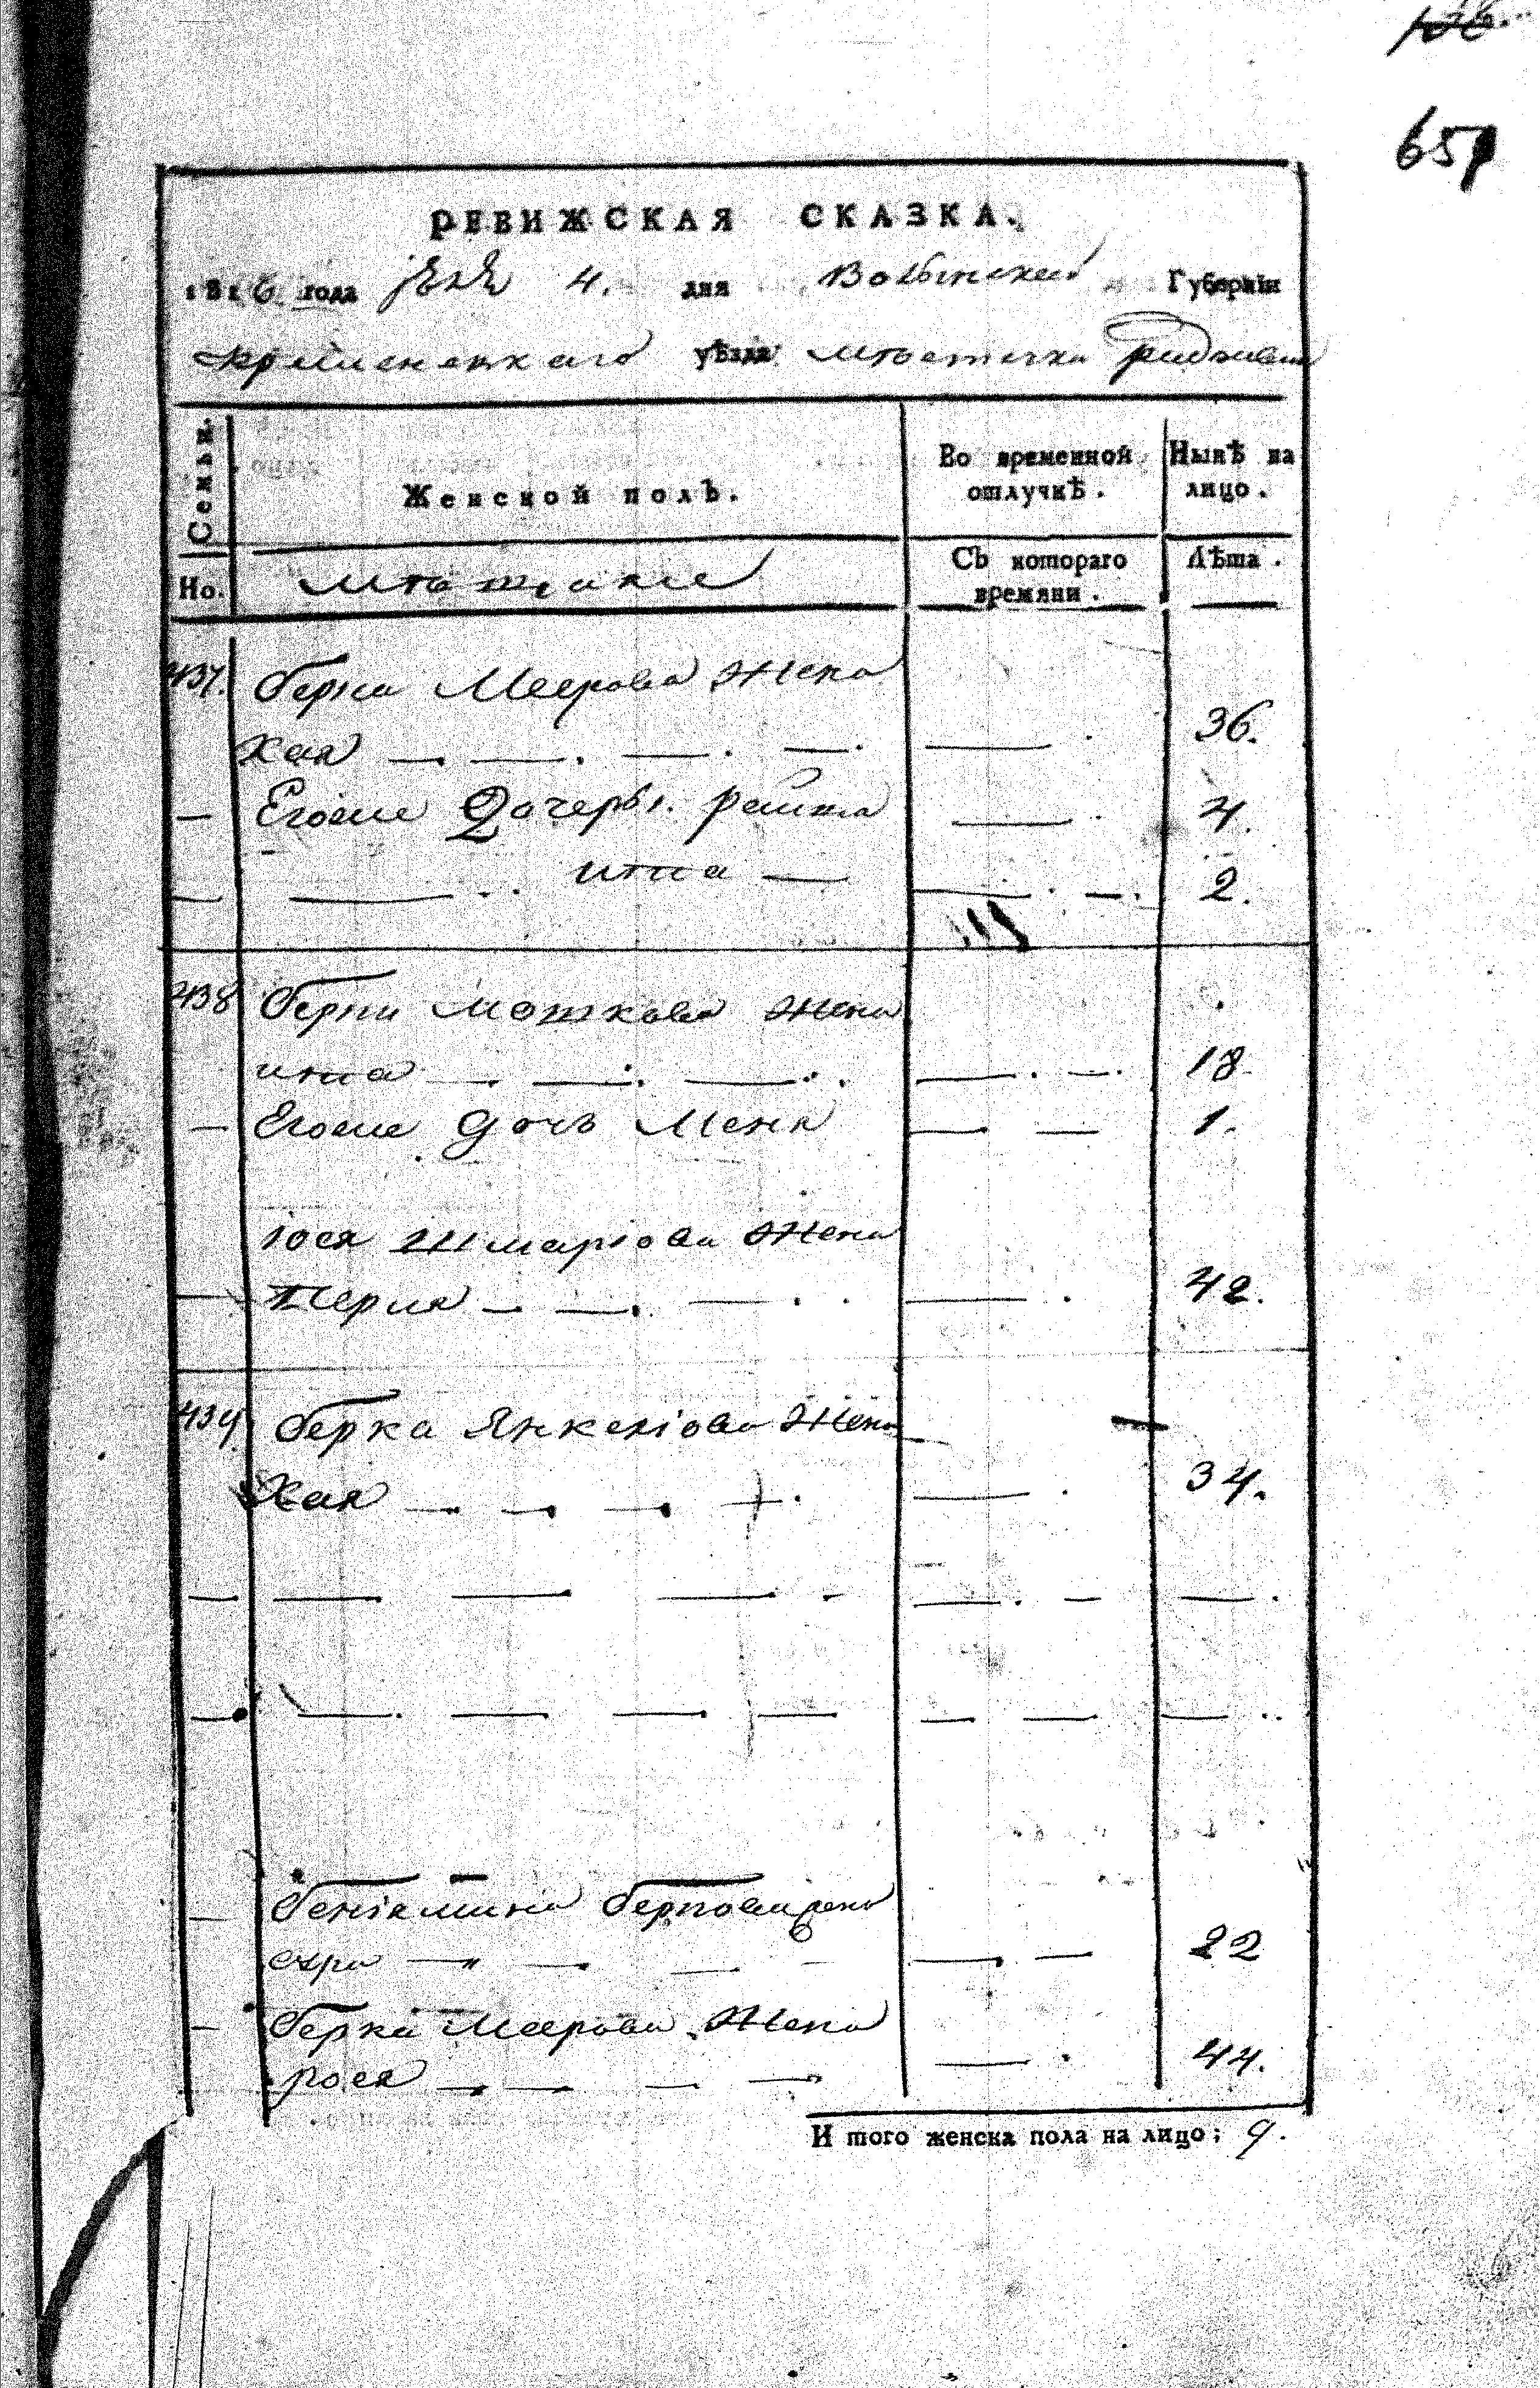 651
РЕВИЖСКАЯ СКАЗКА.
1816 года 4. дня Волынской Губерніи
кременецкаго уѣзда мѣстечка
Семьи.
Женской полъ.
Во временной отлучкѣ.
Нынѣ на лицо.
Но.
Съ котораго времяни.
Лѣта.
437. Берка Меерова Жена
Хая — — — — — 36.
— Егоже Дочеры. Рейза — 4.
— — итта — — — 2.
438 Берки Мошкова жена
итта — — — — — 18
— Егоже дочь Меня — — 1.
Іося Шмаріова Жена
— Перля — — — — 42.
439. Берка Янкеліова Жена
Хая — — — — — 34.
— — — — — — —
— — — — — — — —
— Беніямина Берковича жена
— — — — — — 22
— Берка Меерова Жена
рося — — — — — 44.
И того женска пола на лицо; 9.